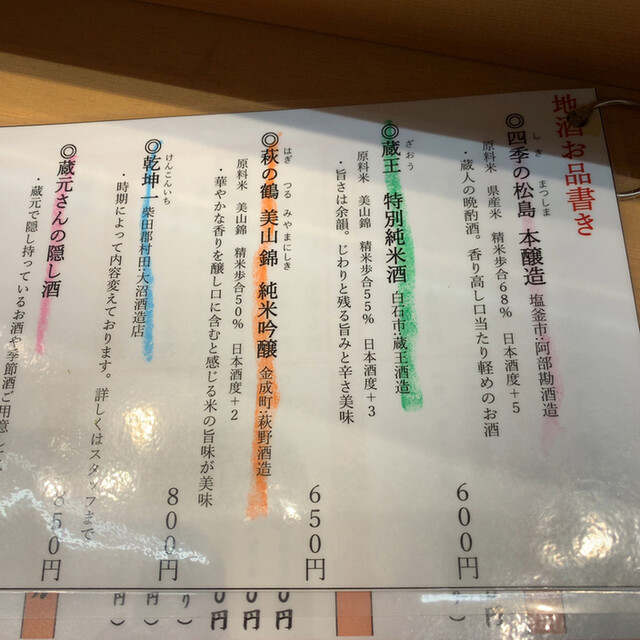 地酒お品書き
しき まつしま
◎四季の松島 本醸造 塩釜市:阿部勘酒造
原料米 県産米 精米歩合68% 日本酒度+5
・蔵人の晩酌酒。香り高し口当たり軽めのお酒
600円
ざおう
◎蔵王 特別純米酒 白石市:蔵王酒造
原料米 美山錦 精米歩合55% 日本酒度+3
・旨さは余韻。じわりと残る旨みと辛さ美味
650円
はぎ つる みやまにしき
◎萩の鶴 美山錦 純米吟醸 金成町:萩野酒造
原料米 美山錦 精米歩合50% 日本酒度+2
・華やかな香りを醸し口に含むと感じる米の旨味が美味
800円
けんこんいち
◎乾坤一 柴田郡村田:大沼酒造店
・時期によって内容変えております。詳しくはスタッフまで
850円
◎蔵元さんの隠し酒
・蔵元で隠し持っているお酒や季節酒ご用意して